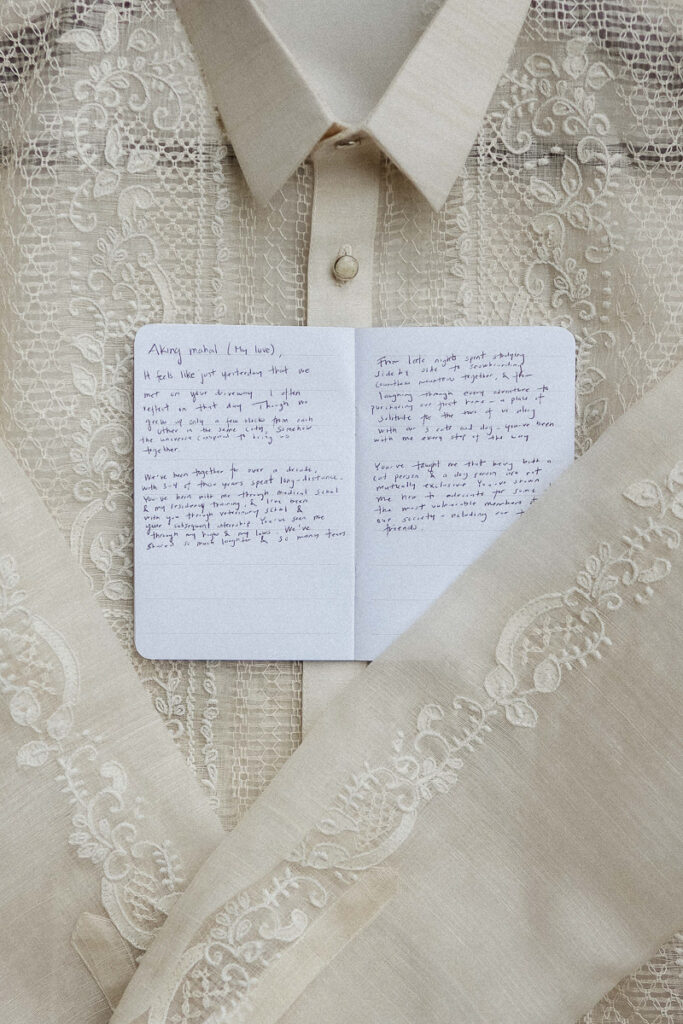 Aking mahal (My love),
It feels like just yesterday that we
met on your driveway. I often
reflect on that day. Though we
grew up only a few blocks from each
other in the same city, somehow
the universe conspired to bring us
together.
We've been together for over a decade,
with 3-4 of those years spent long-distance.
You've been with me through medical school
& my residency training, & I've been
with you through veterinary school &
your subsequent internship. You've seen me
through my highs & my lows. We've
shared so much laughter & so many tears
From late nights spent studying
side by side to snowboarding
countless mountains together, & from
laughing through every adventure to
purchasing our first home - a place of
solitude for the two of us along
with our 3 cats and dog - you've been
with me every step of the way
You've taught me that being both a
cat person & a dog person are not
mutually exclusive. You've shown
me how to advocate for some
the most vulnerable members
our society - including our
friends.